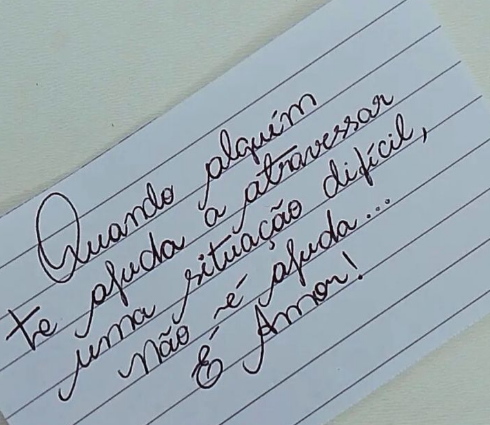 Quando alguém
te ajuda a atravessar
uma situação difícil,
não é ajuda...
É Amor!